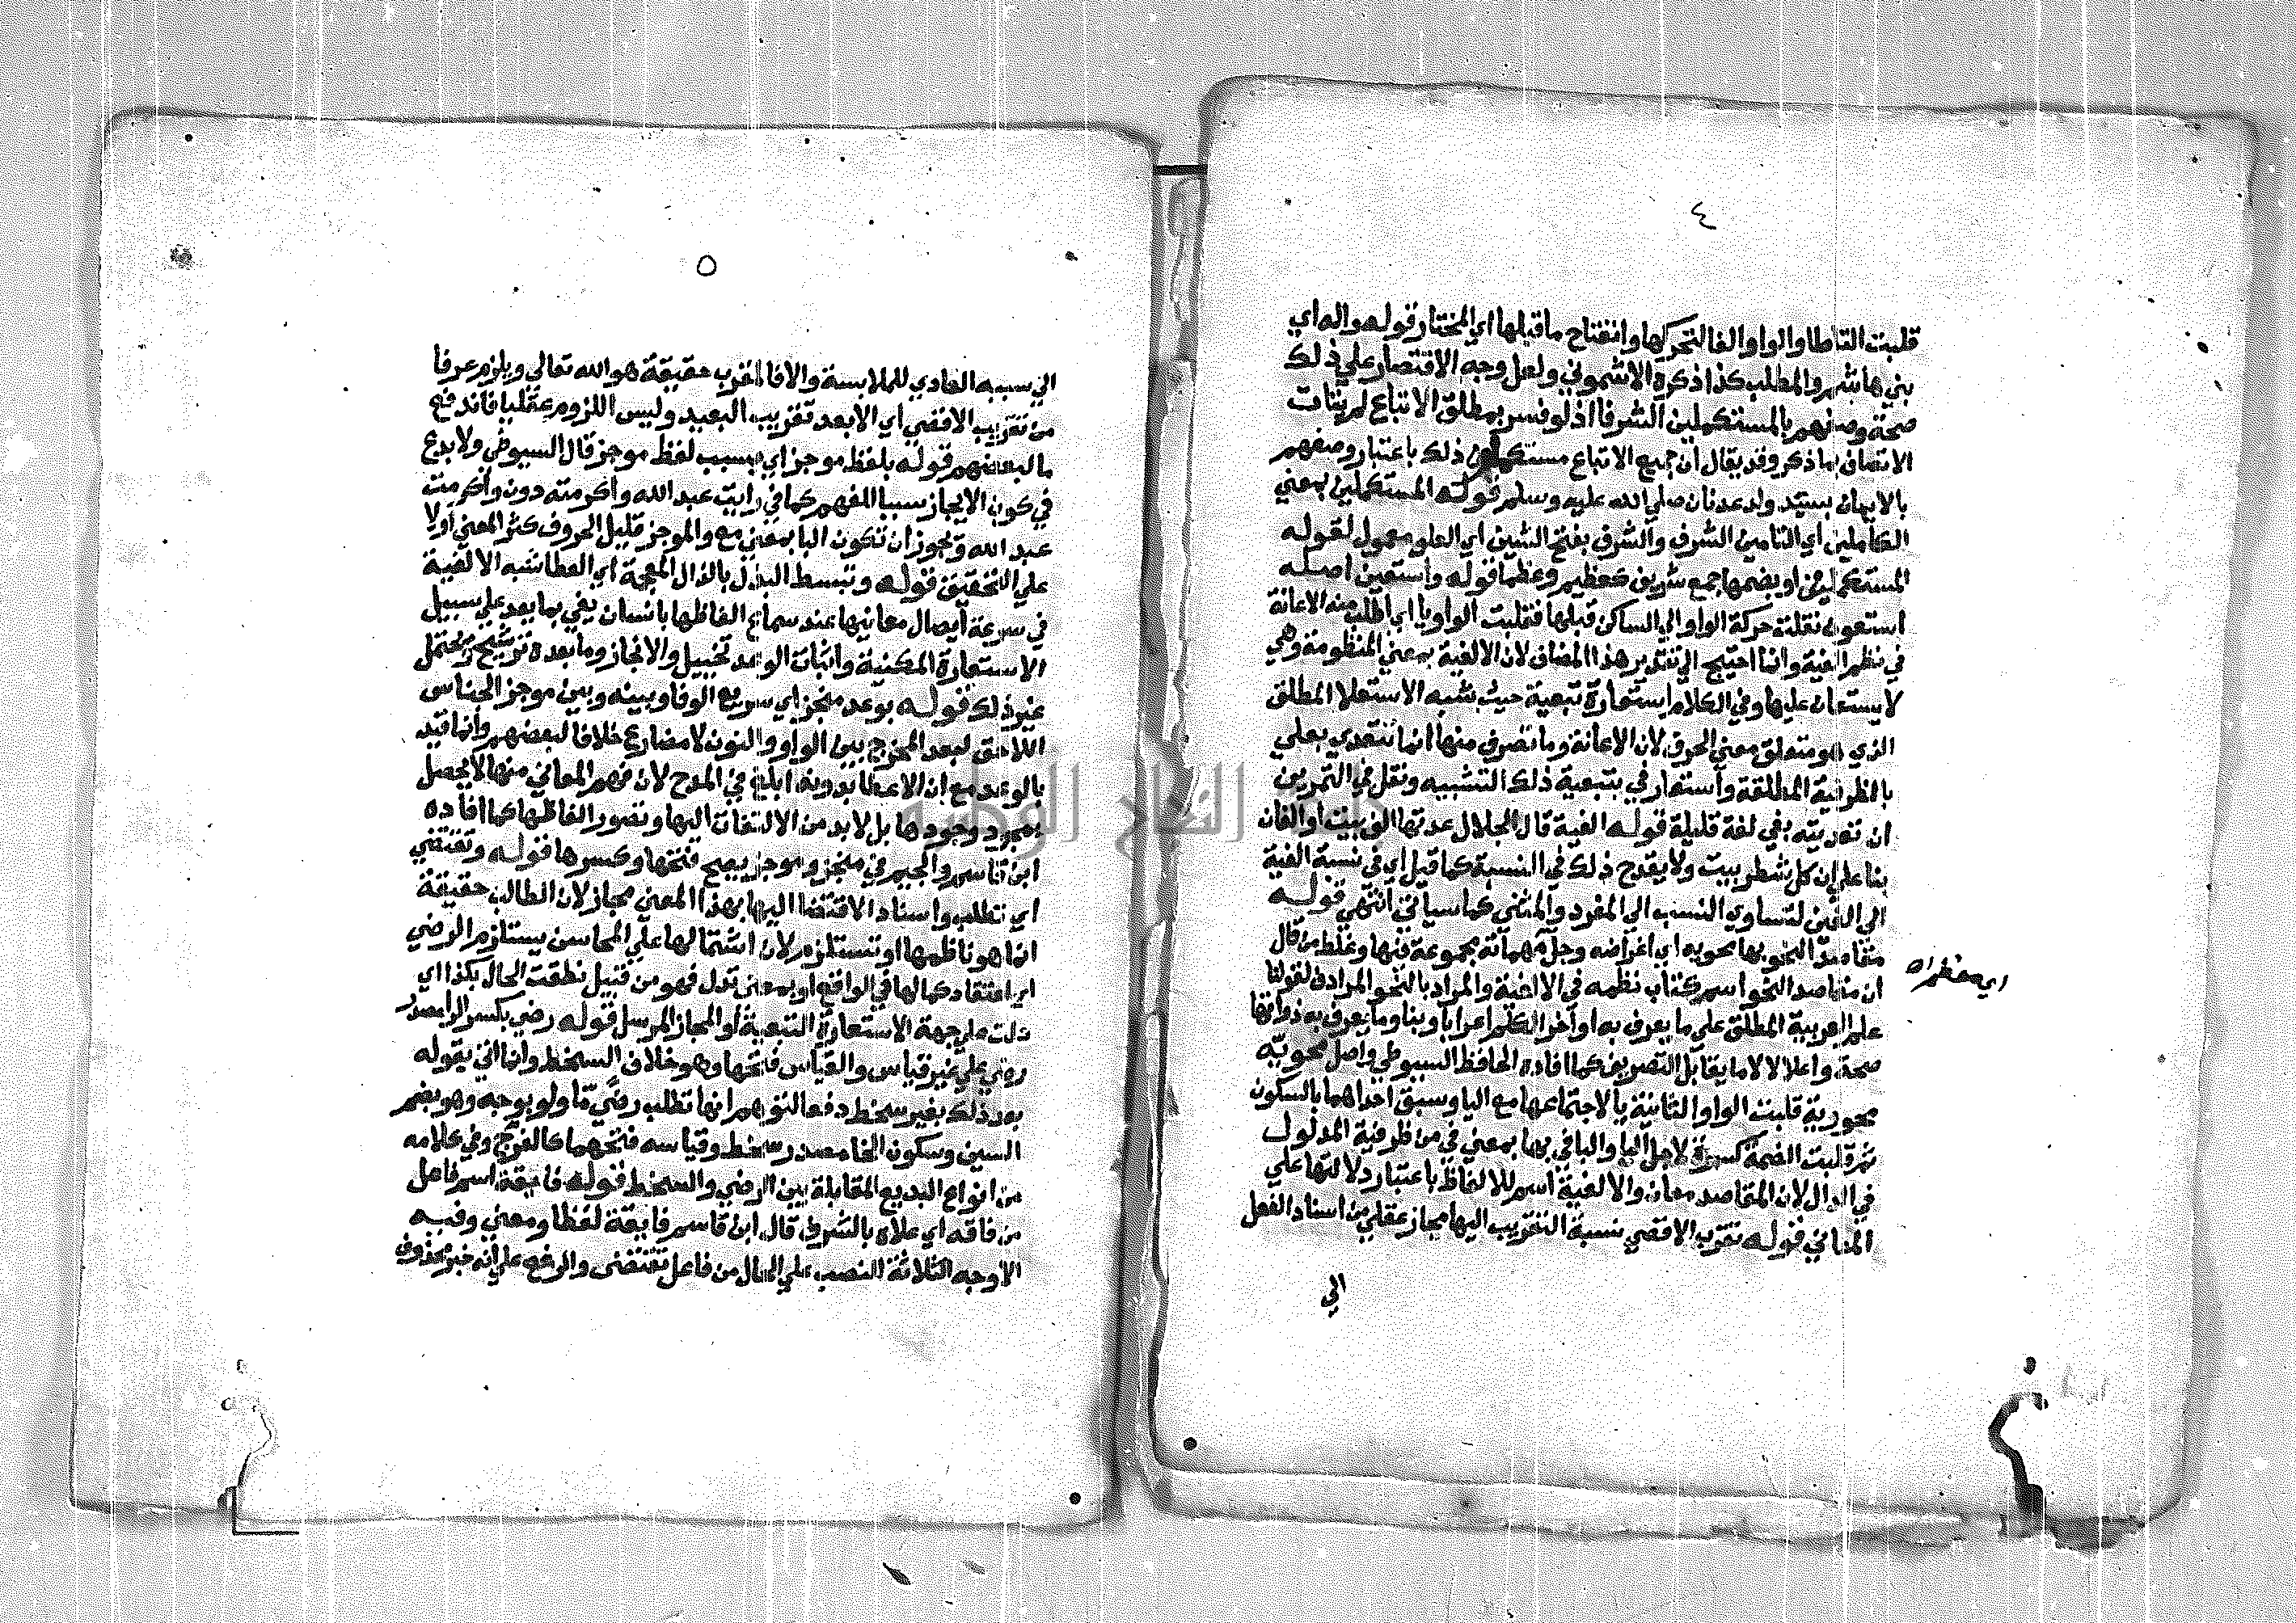 ٤
قلبت التا طا والواو الفا لتحركها وانفتاح ما قبلها اي المختار قوله واله اي
بني هاشم والمطلب كذا ذكره الاشموني ولعل وجه الاقتصار علي ذلك
صحة وصفهم بالمستكملين الشرفا اذ لو فسر بمطلق الاتباع لم يتات
الاتصاف بما ذكر وقد يقال ان جميع الاتباع مستكملون ذلك باعتبار وصفهم
بالايمان بسيد ولد عدنان صلي الله عليه وسلم قوله المستكملين بمعني
الكاملين اي التامين الشرف والشرف بفتح الشين اي العلو معمول لقوله
المستكملين او بضمها جمع شريف كعظيم وعظما قوله واستعين اصله
استعون نقلت حركة الواو الي الساكن قبلها فقلبت الواو يا اي اطلب منه الاعانة
في نظم الفية وانما احتيج الي تقدير هذا المضاف لان الالفية بمعني المنظومة وهي
لا يستعان عليها وفي الكلام استعارة تبعية حيث شبه الاستعلا المطلق
الذي هو متعلق معني الحرف لان الاعانة وما تصرف منها انما تتعدي بعلي
بالظرفية المطلقة واستعار في بتبعية ذلك التشبيه ونقل في التمرين
ان تعديته بفي لغة قليلة قوله الفية قال الجلال عدتها الف بيت او الفان
بنا علي ان كل شطر بيت ولا يقدح ذلك في النسبة كما قيل اي في نسبة الفية
الي الفين لتساوي النسب الي المفرد والمثني كما سياتي انتهي قوله
مقاصد النحو بها محويه اي اغراضه وجل مهماته مجموعة فيها وغلط من قال
اي حفظه الله
ان مقاصد النحو اسم كتاب نظمه في الالفية والمراد بالنحو المرادف لقولنا
علم العربية المطلق علي ما يعرف به اواخر الكلم اعرابا وبنا وما يعرف به ذواتها
صحة واعلالا لا ما يقابل التصريف كما افاده الحافظ السيوطي واصل محويه
محووية قلبت الواو الثانية يا لاجتماعها مع اليا وسبق احداهما بالسكون
ثم قلبت الضمة كسرة لاجل اليا والبا في بها بمعني في من ظرفية المدلول
في الدال لان المقاصد معان والالفية اسم للالفاظ باعتبار دلالتها علي
المعاني قوله تقرب الاقصي نسبة التقريب اليها مجاز عقلي من اسناد الفعل
الي
٥
الي سببه العادي للملابسة والا فالمقرب حقيقة هو الله تعالي ويلزم عرفا
من تقريب الاقصي اي الابعد تقريب البعيد وليس اللزوم عقليا فاندفع
ما لبعضهم قوله بلفظ موجز اي بسبب لفظ موجز قال السيوطي ولا بدع
في كون الايجاز سببا للفهم كما في رايت عبد الله واكرمته دون واكرمت
عبد الله ويجوز ان تكون البا بمعني مع والموجز قليل الحروف كثر المعني او لا
علي التحقيق قوله وتبسط البذل بالذال المعجمة اي العطا شبه الالفية
في سرعة ايصال معانيها عند سماع الفاظها بانسان يفي بما يعد علي سبيل
الاستعارة المكنية واثبات الوعد تخييل والانجاز وما بعده ترشيح ويحتمل
غير ذلك قوله بوعد منجز اي سريع الوفا وبينه وبين موجز الجناس
اللاحق لبعد المخرج بين الواو والنون لا مضارع خلافا لبعضهم وانما قيد
بالوعد مع ان الاعطا بدونه ابلغ في المدح لان فهم المعاني منها لا يحصل
بمجرد وجودها بل لا بد من الالتفات اليها وتصور الفاظها كما افاده
ابن قاسم والجيم في منجز وموجز يصح فتحها وكسرها قوله وتقتضي
اي تطلب واسناد الاقتضا اليها بهذا المعني مجاز لان الطالب حقيقة
انما هو ناظمها او تستلزم لان اشتمالها علي المحاسن يستلزم الرضي
اي اعتقاد كمالها في الواقع او بمعني تدل فهو من قبيل نطقت الحال بكذا اي
دلت علي جهة الاستعارة التبعية او المجاز المرسل قوله رضي بكسر الرا مصدر
رضي علي غير قياس والقياس فتحها وهو خلاف السخط وانما اتي بقوله
بعد ذلك بغير سخط دفعا لتوهم انها تطلب رضًي ما ولو بوجه وهو بضم
السين وسكون الخا مصدر سخط وقياسه فتحهما كالفرح وفي كلامه
من انواع البديع المقابلة بين الرضي والسخط قوله فايقة اسم فاعل
من فاقه اي علاه بالشرف قال ابن قاسم فايقة لفظا ومعني وفيه
الاوجه الثلاثة النصب علي الحال من فاعل تقتضي والرفع علي انه خبر محذوف